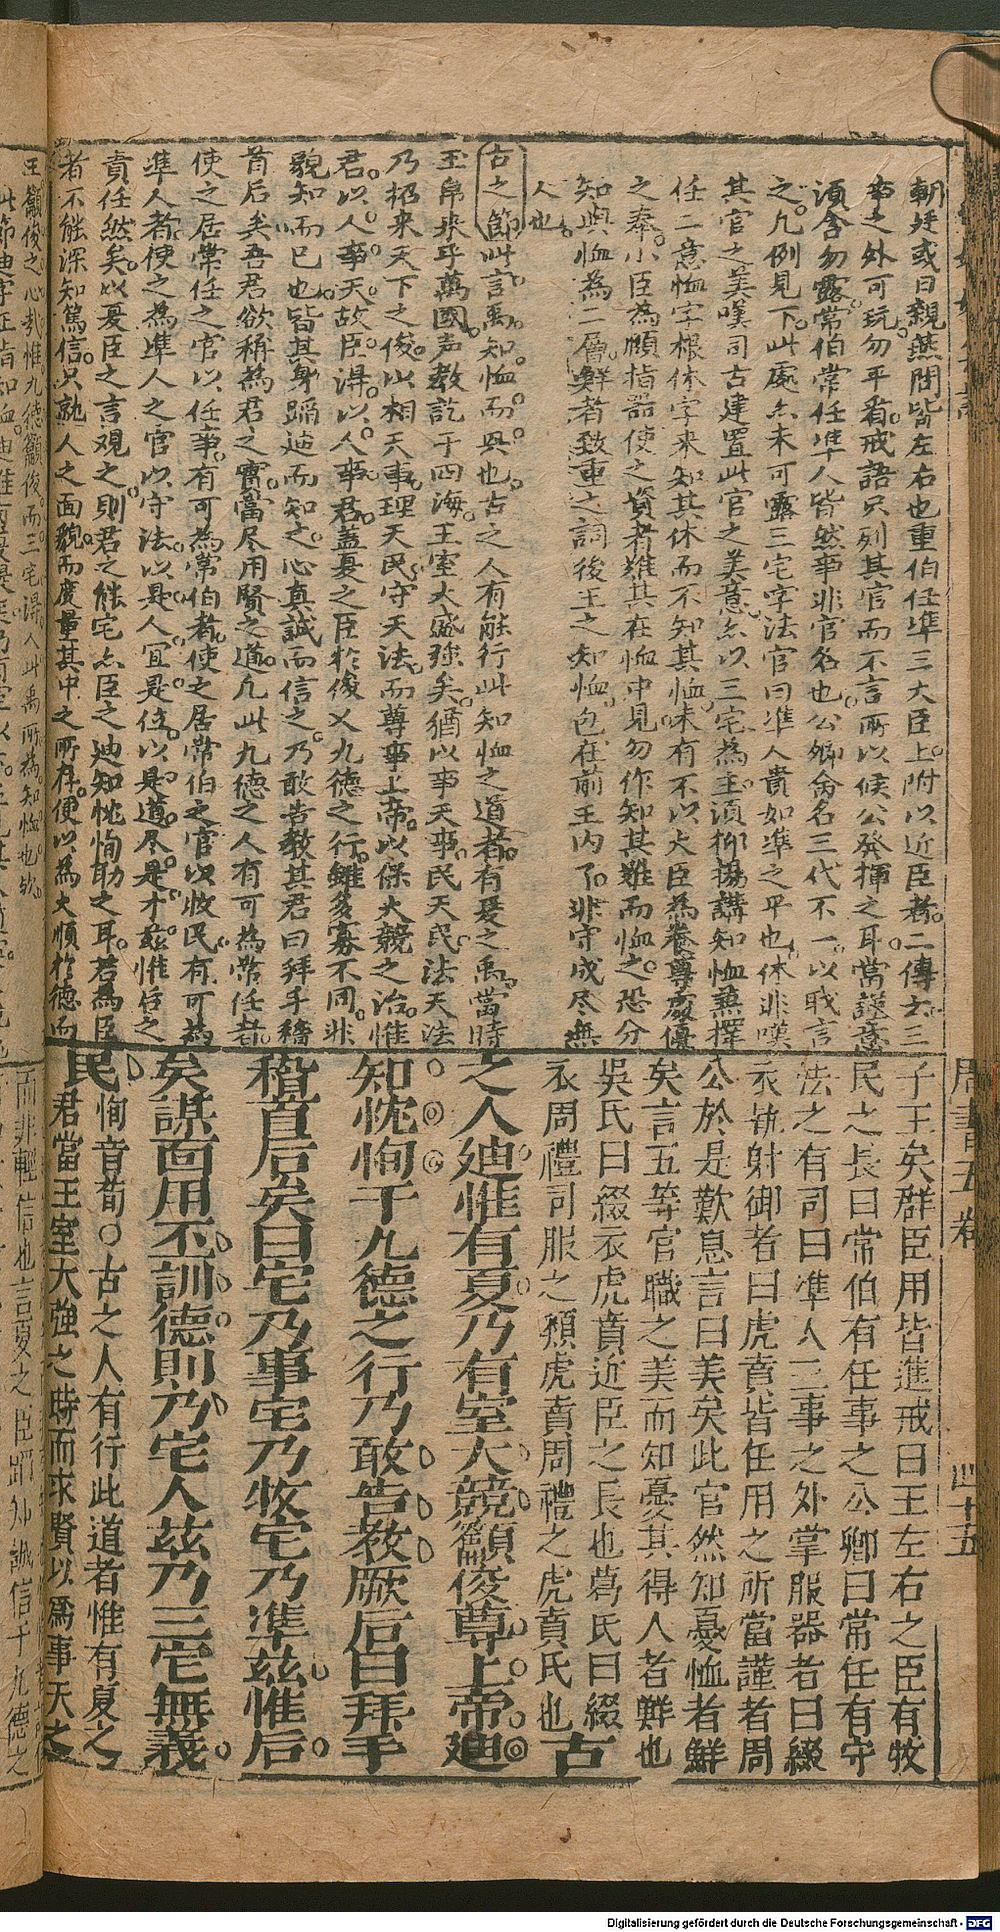 朝廷或曰親燕閒皆左右也重伯任準三大臣上附以近臣者二傳云三
事之外可玩勿平看戒語只列其官而不言所以候公發揮之耳當謹意
須含勿露常伯常任準人皆然事非官名也公卿舍名三代不一以戝言
之凡例見下此處亦未可露三宅字法官曰準人貴如準之平也休非嘆
其官之美嘆司古建置此官之美意亦以三宅為主須抑揚講知恤兼擇
任二意恤字根休字来知其休而不知其恤未有不以大臣為養尊處優
之奉小臣為順指器使之資者難其在恤中見勿作知其難而恤之恐分
知與恤為二層鮮者致重之詞後王之知恤包在前王内了非守成尽無
人也
古之節此言禹知恤而興也古之人有能行此知恤之道者有夏之禹當時
玉帛来乎萬國声教訖于四海王室大盛強矣猶以事天事民天民法天法
乃招来天下之俊以相天事理天民守天法而尊事上帝以保大競之治惟
君以人事天故臣得以人事君蓋夏之臣於俊乂九德之行雖多寡不同非
貌知而已也皆其身蹈迪而知之心真誠而信之乃敢告教其君曰拜手稽
首后矣吾君欲稱為君之實當尽用賢之道凡此九德之人有可為常任者
使之居常任之官以任事有可為常伯者使之居常伯之官以牧民有可為
準人者使之為準人之官以守法以是人冝是位以是道尽是才茲惟后之
責任然矣以夏臣之言观之則君之能宅亦臣之迪知忱恂助之耳若為臣
者不能深知篤信只就人之面貌而度量其中之所存便以為大順於德而
子王矣群臣用皆進戒曰王左右之臣有牧
民之長曰常伯有任事之公卿曰常任有守
法之有司曰準人三事之外掌服器者曰綴
衣執射御者曰虎賁皆任用之所當謹者周
公於是歎息言曰美矣此官然知憂恤者鮮
矣言五等官職之美而知憂其得人者鮮也
吳氏曰綴衣虎賁近臣之長也葛氏曰綴
衣周禮司服之類虎賁周禮之虎賁氏也古
之人迪惟有夏乃有室大競籲俊尊上帝迪
知忱恂于九德之行乃敢告教厥后曰拜手
稽首后矣曰宅乃事宅乃牧宅乃準茲惟后
矣謀面用丕訓德則乃宅人茲乃三宅無義
民恂音荀○古之人有行此道者惟有夏之
君當王室大強之時而求賢以爲事天之
周書五卷
四十五
王籲俊之心哉惟九德籲俊而三宅得人此禹所為知恤也欤
而非輕信也言夏之臣蹈知誠信于九德之
Digitalisierung gefördert durch die Deutsche Forschungsgemeinschaft - DFG